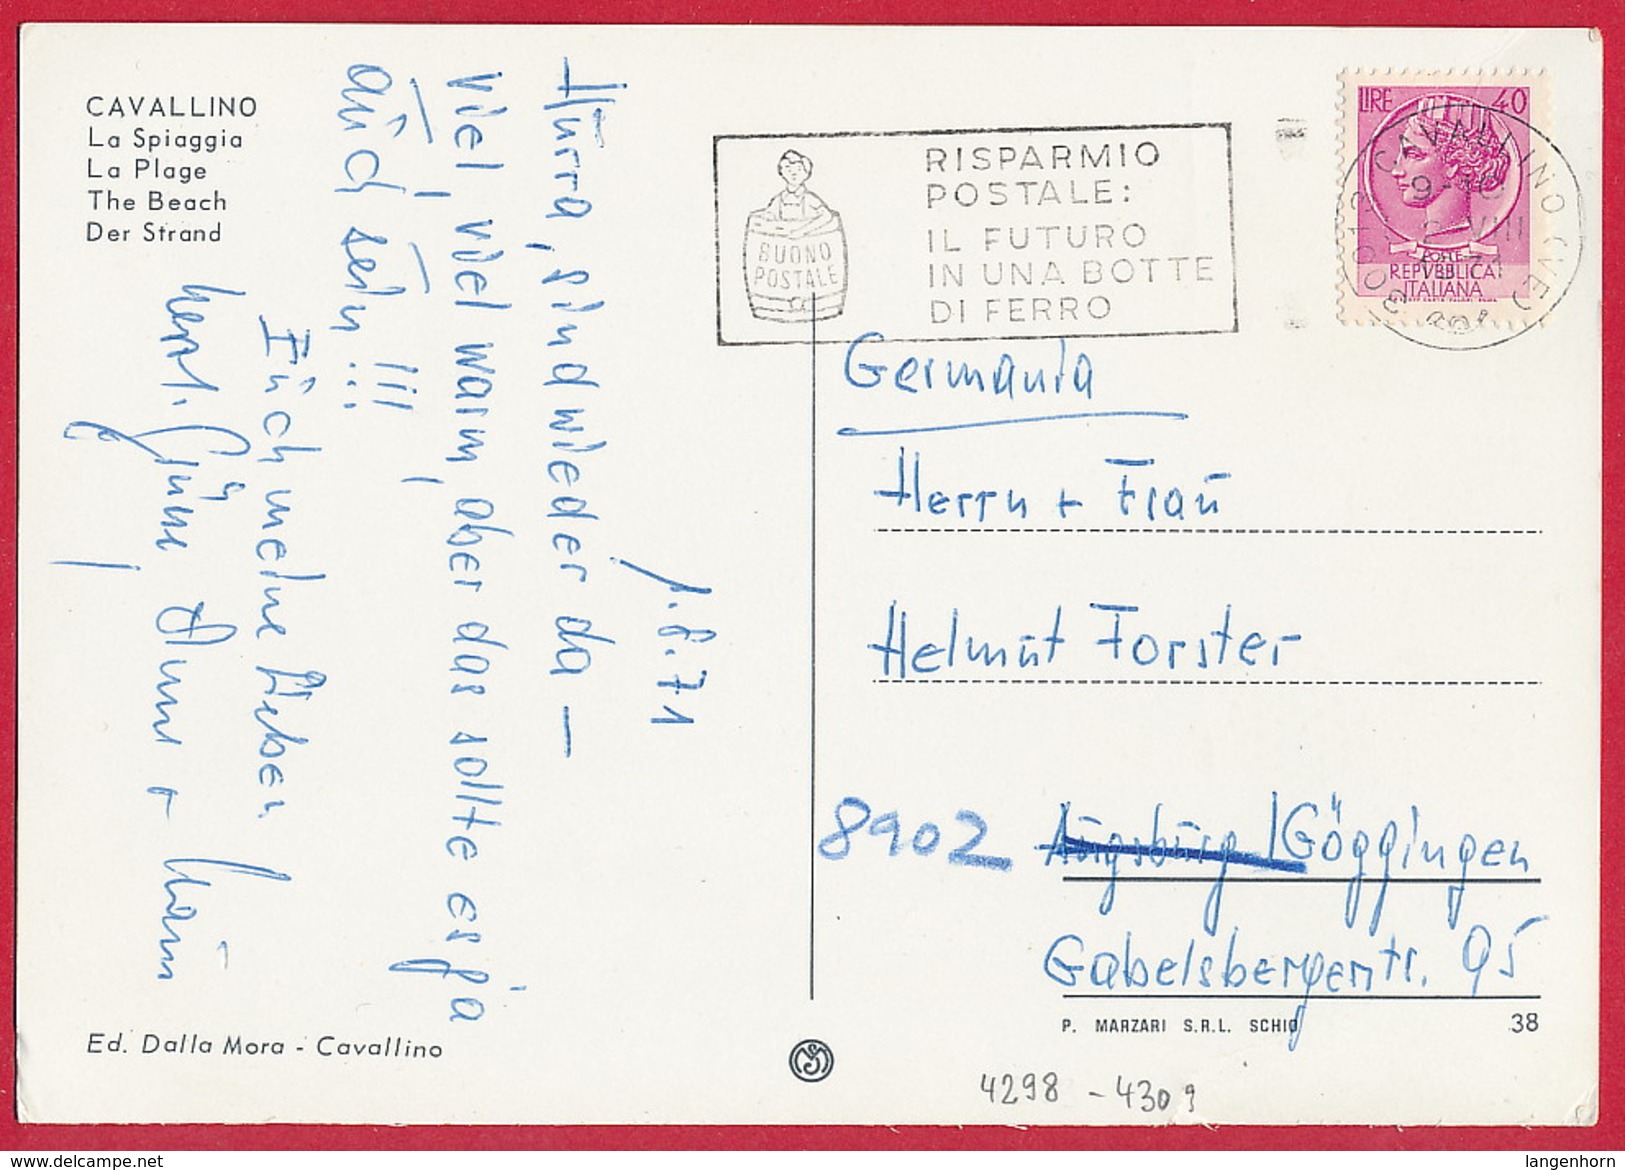 CAVALLINO
La Spiaggia
La Plage
The Beach
Der Strand
1.8.71
Hurra, sind wieder da –
Viel, viel warm, aber das sollte es ja
auch sein!!!
Euch meine Lieben
herzl. Grüsse Anne +
Ed. Dalla Mora - Cavallino
BUONO
POSTALE
RISPARMIO
POSTALE:
IL FUTURO
IN UNA BOTTE
DI FERRO
LIRE 40
POSTE
REPVBBLICA
ITALIANA
30013 CAVALLINO (VE)
VIII
71
Germania
Herrn + Frau
Helmut Forster
8902 Augsburg/Göggingen
Gabelsbergerstr. 95
P. MARZARI S.R.L. SCHIO
38
4298 - 4309
delcampe.net
langenhorn